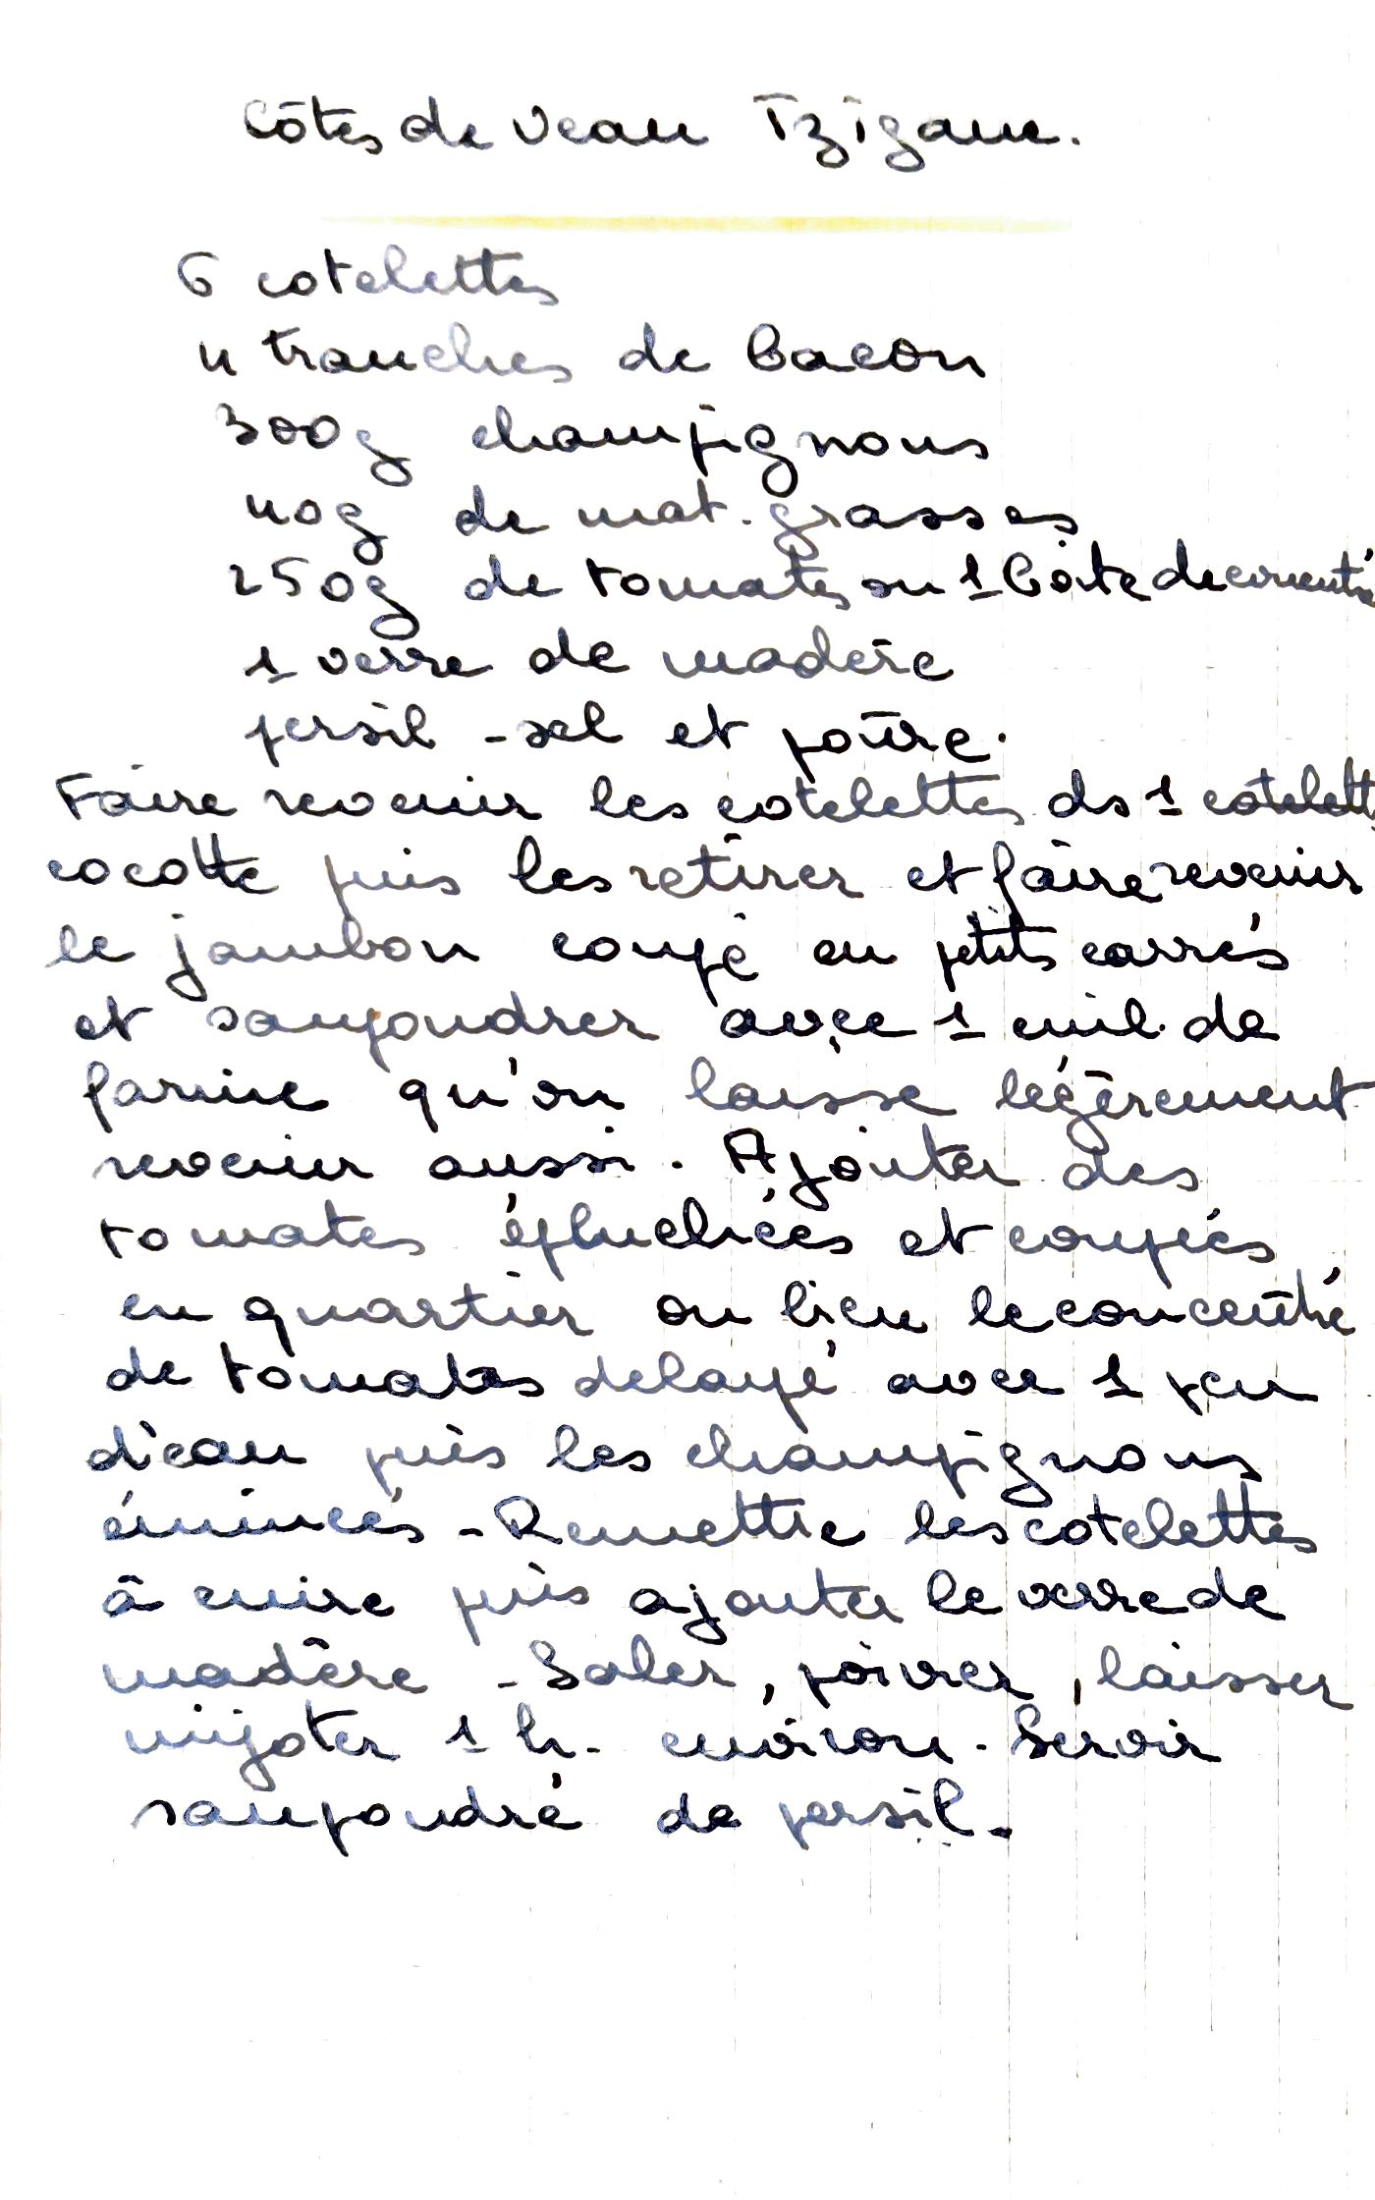 Côtes de veau Tzigane.
6 cotelettes
4 tranches de bacon
300g champignons
40g de mat. grasses
250g de tomates ou 1 boîte de concentré
1 verre de madère
persil - sel et poivre.
Faire revenir les cotelettes ds 1 cotelette
cocotte puis les retirer et faire revenir
le jambon coupé en petits carrés
et saupoudrer avec 1 cuil. de
farine qu'on laisse légèrement
revenir aussi. Ajouter des
tomates épluchées et coupés
en quartier ou bien le concentré
de tomates delayé avec 1 peu
d'eau puis les champignons
émincés - Remettre les cotelettes
à cuire puis ajouter le verre de
madère - Saler, poivrer, laisser
mijoter 1 h. environ. Servir
saupoudré de persil -